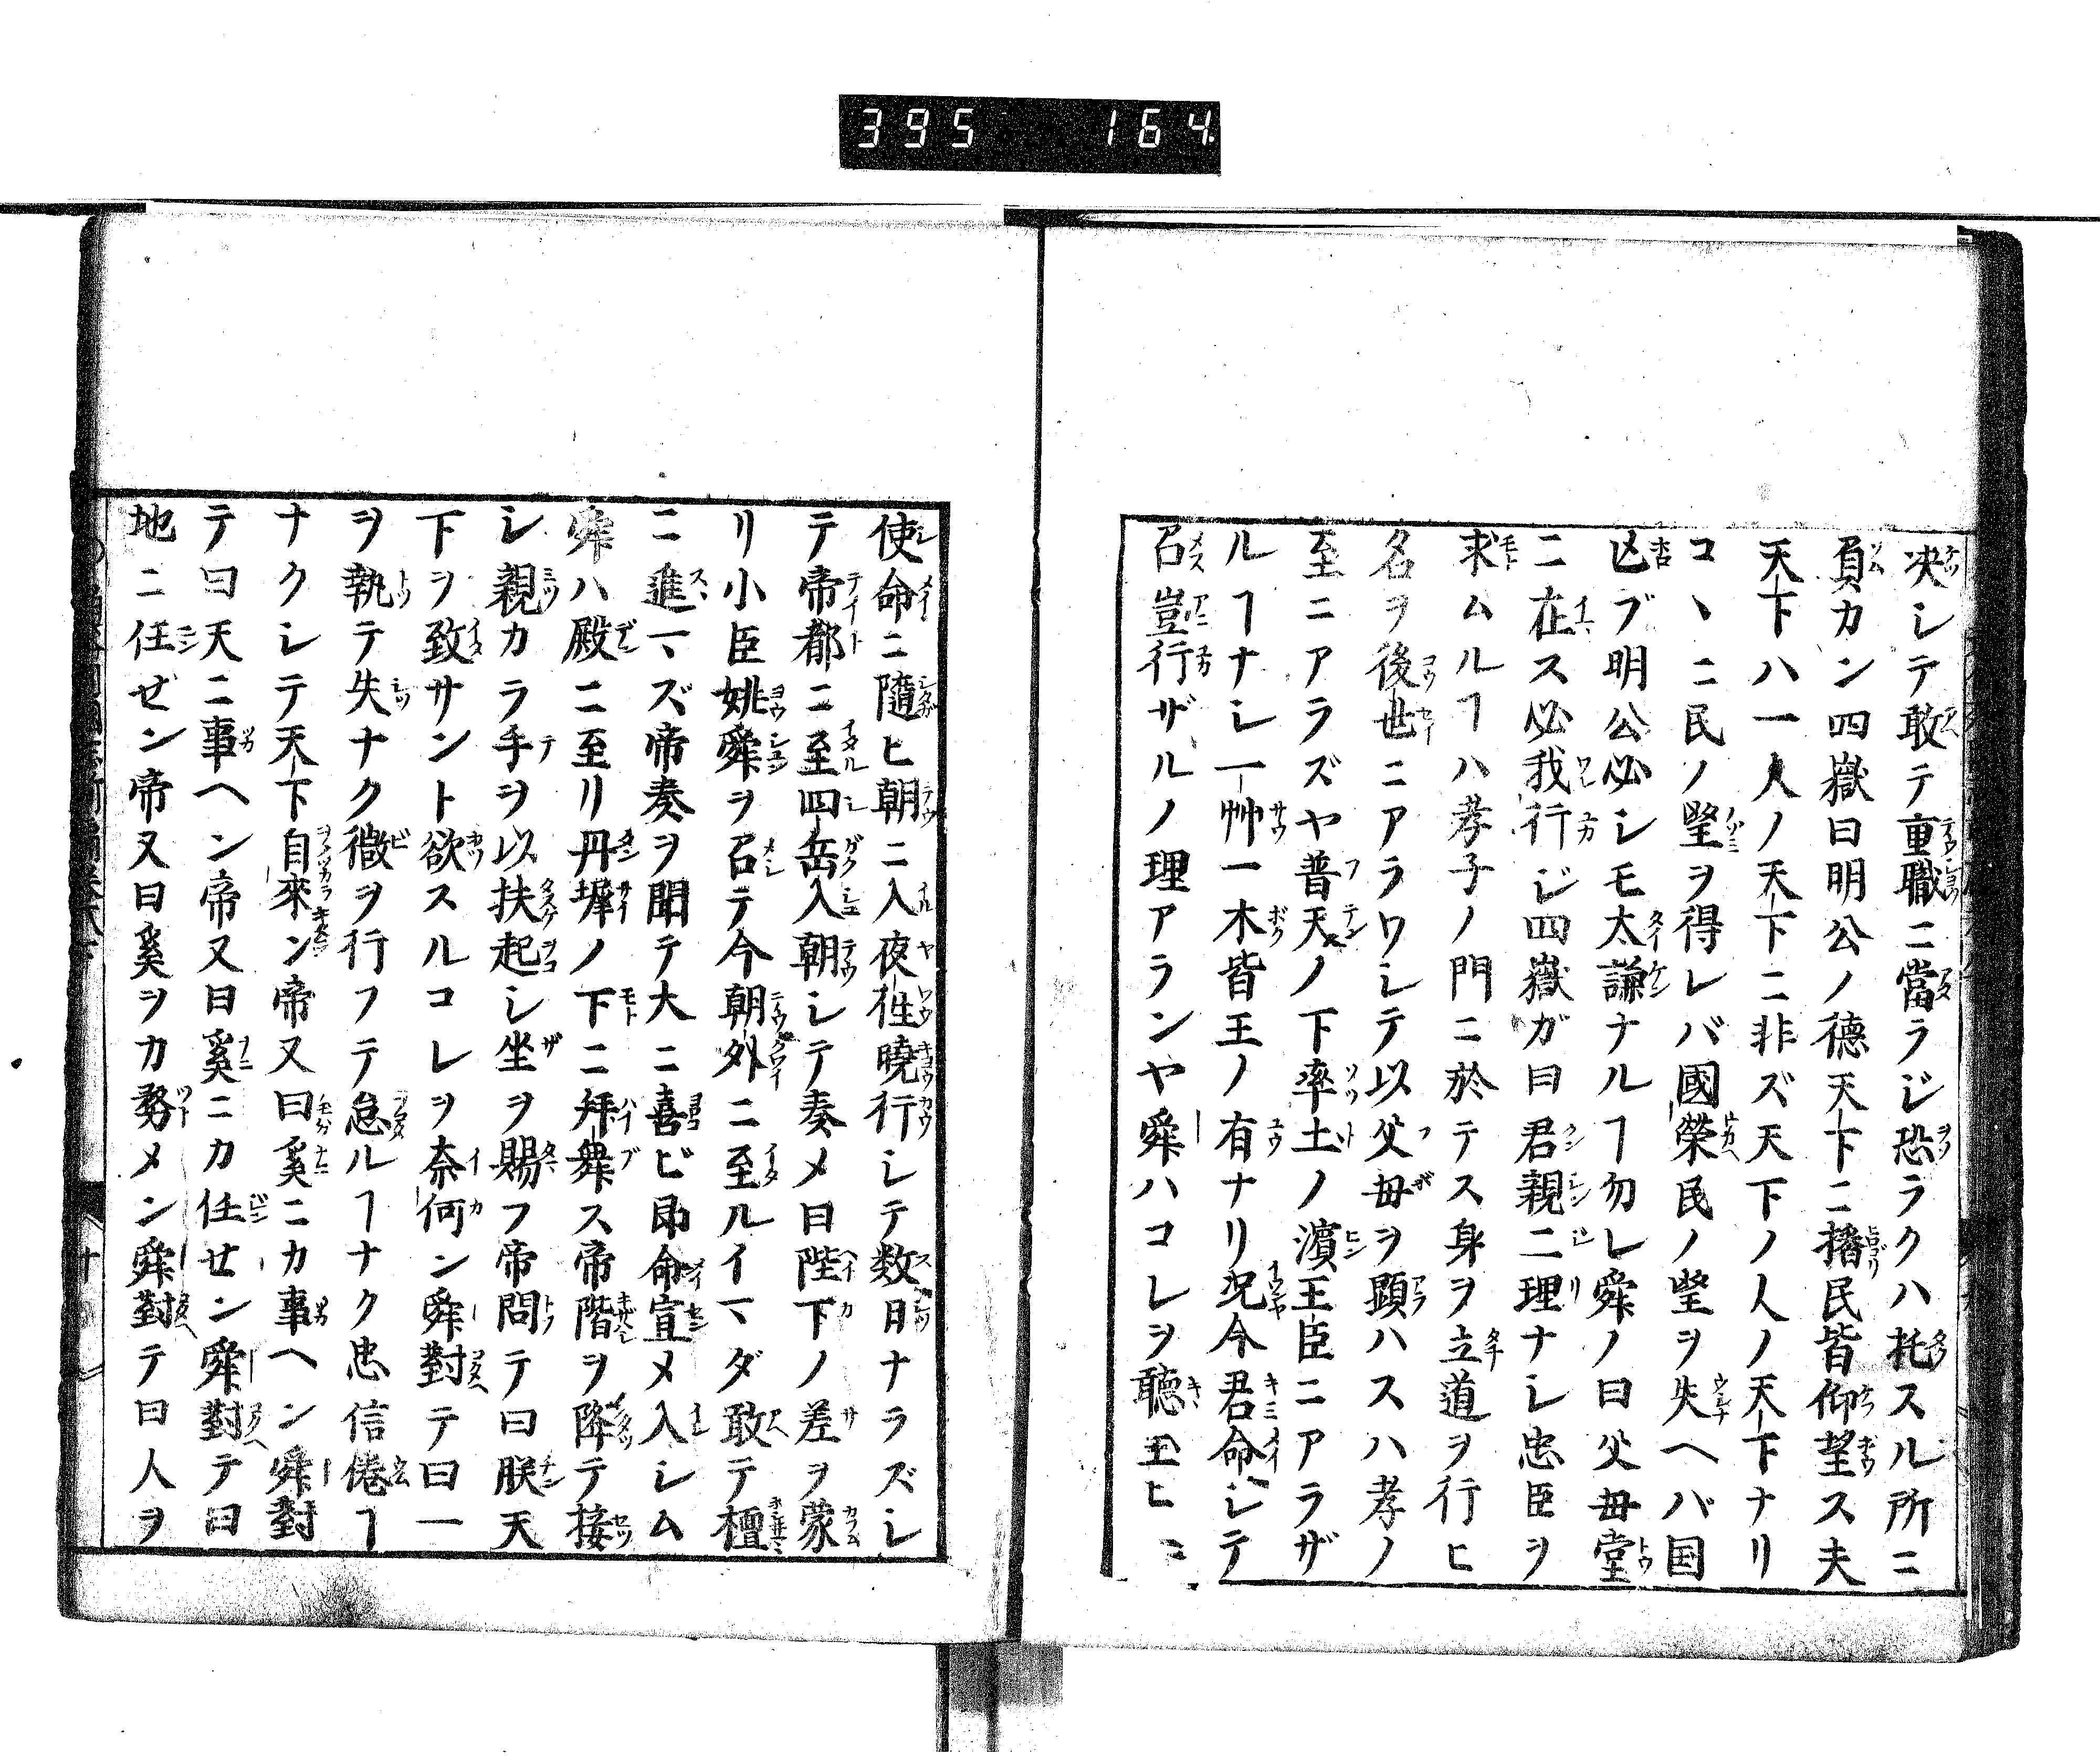 395 164
决シテ敢テ重職ニ當ラジ恐ラクハ托スル所ニ
負カン四嶽曰明公ノ德天下ニ播民皆仰望ス夫
天下ハ一人ノ天下ニ非ズ天下ノ人ノ天下ナリ
コヽニ民ノ望ヲ得レバ國榮民ノ望ヲ失ヘバ国
亡ブ明公必シモ太謙ナルヿ勿レ舜ノ曰父母堂
ニ在ス必我行ジ四嶽ガ曰君親二理ナシ忠臣ヲ
求ムルヿハ孝子ノ門ニ於テス身ヲ立道ヲ行ヒ
名ヲ後世ニアラワシテ以父母ヲ顕ハスハ孝ノ
至ニアラズヤ普天ノ下率土ノ濱王臣ニアラザ
ルヿナシ一艸一木皆王ノ有ナリ况今君命シテ
召豈行ザルノ理アランヤ舜ハコレヲ聽玉ヒ
使命ニ隨ヒ朝ニ入夜徃曉行シテ数日ナラズシ
テ帝都ニ至四岳入朝シテ奏メ曰陛下ノ差ヲ蒙
リ小臣姚舜ヲ召テ今朝外ニ至ルイマダ敢テ檀
ニ進マズ帝奏ヲ聞テ大ニ喜ビ即命宣メ入シム
舜ハ殿ニ至リ丹墀ノ下ニ拜舞ス帝階ヲ降テ接
シ親カラ手ヲ以扶起シ坐ヲ賜フ帝問テ曰朕天
下ヲ致サント欲スルコレヲ奈何ン舜對テ曰一
ヲ執テ失ナク微ヲ行フテ怠ルヿナク忠信倦ヿ
ナクシテ天下自來ン帝又曰奚ニカ事ヘン舜對
テ曰天ニ事ヘン帝又曰奚ニカ任せン舜對テ曰
地ニ任ぜン帝又曰奚ヲカ務メン舜對テ曰人ヲ
十